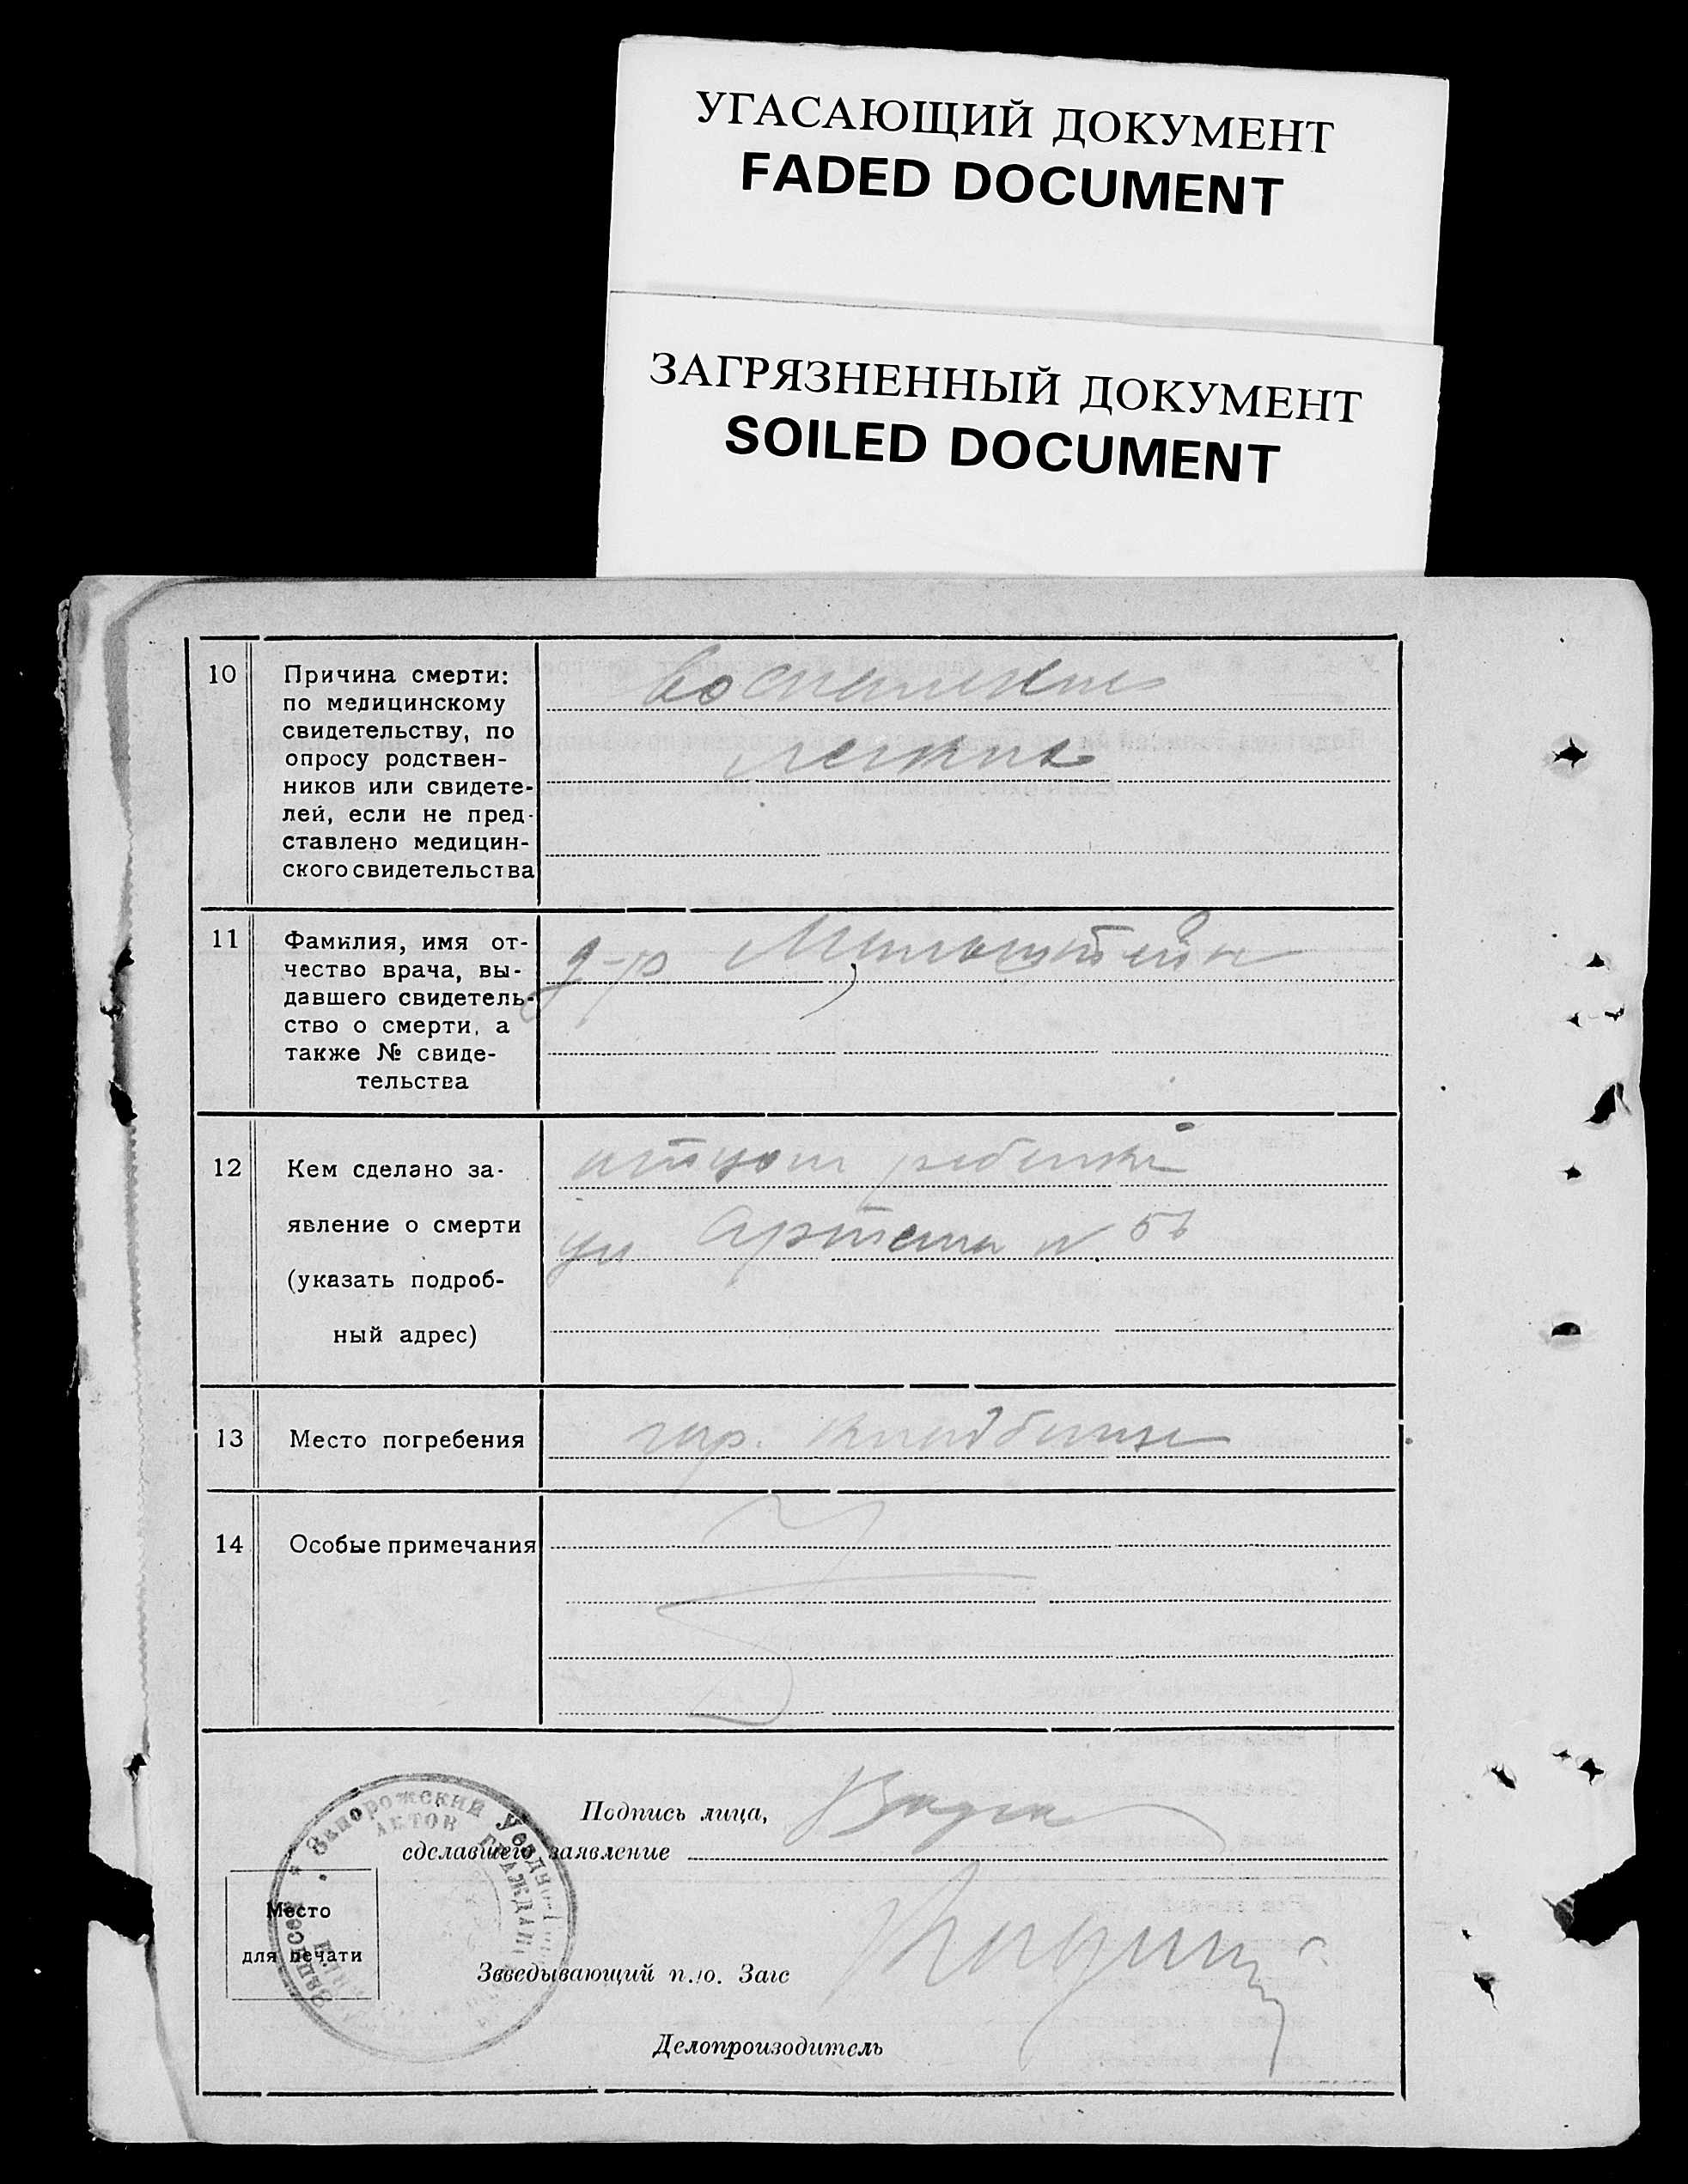 УГАСАЮЩИЙ ДОКУМЕНТ
FADED DOCUMENT
ЗАГРЯЗНЕННЫЙ ДОКУМЕНТ
SOILED DOCUMENT
10 Причина смерти:
по медицинскому
свидетельству, по
опросу родствен-
ников или свидете-
лей, если не пред-
ставлено медицин-
ского свидетельства
воспаление
легких
11 Фамилия, имя от-
чество врача, вы-
давшего свидетель-
ство о смерти, а
также № свиде-
тельства
д-р Мильштейн
12 Кем сделано за-
явление о смерти
(указать подроб-
ный адрес)
отцом ребенка
ул Артема N
13 Место погребения
гор. кладбище
14 Особые примечания
Подпись лица,
сделавшего заявление
Место
для печати
Запорожский
АКТОВ ГРАЖДАН
Записей
Заведывающий п./о. Загс
Делопроизводитель